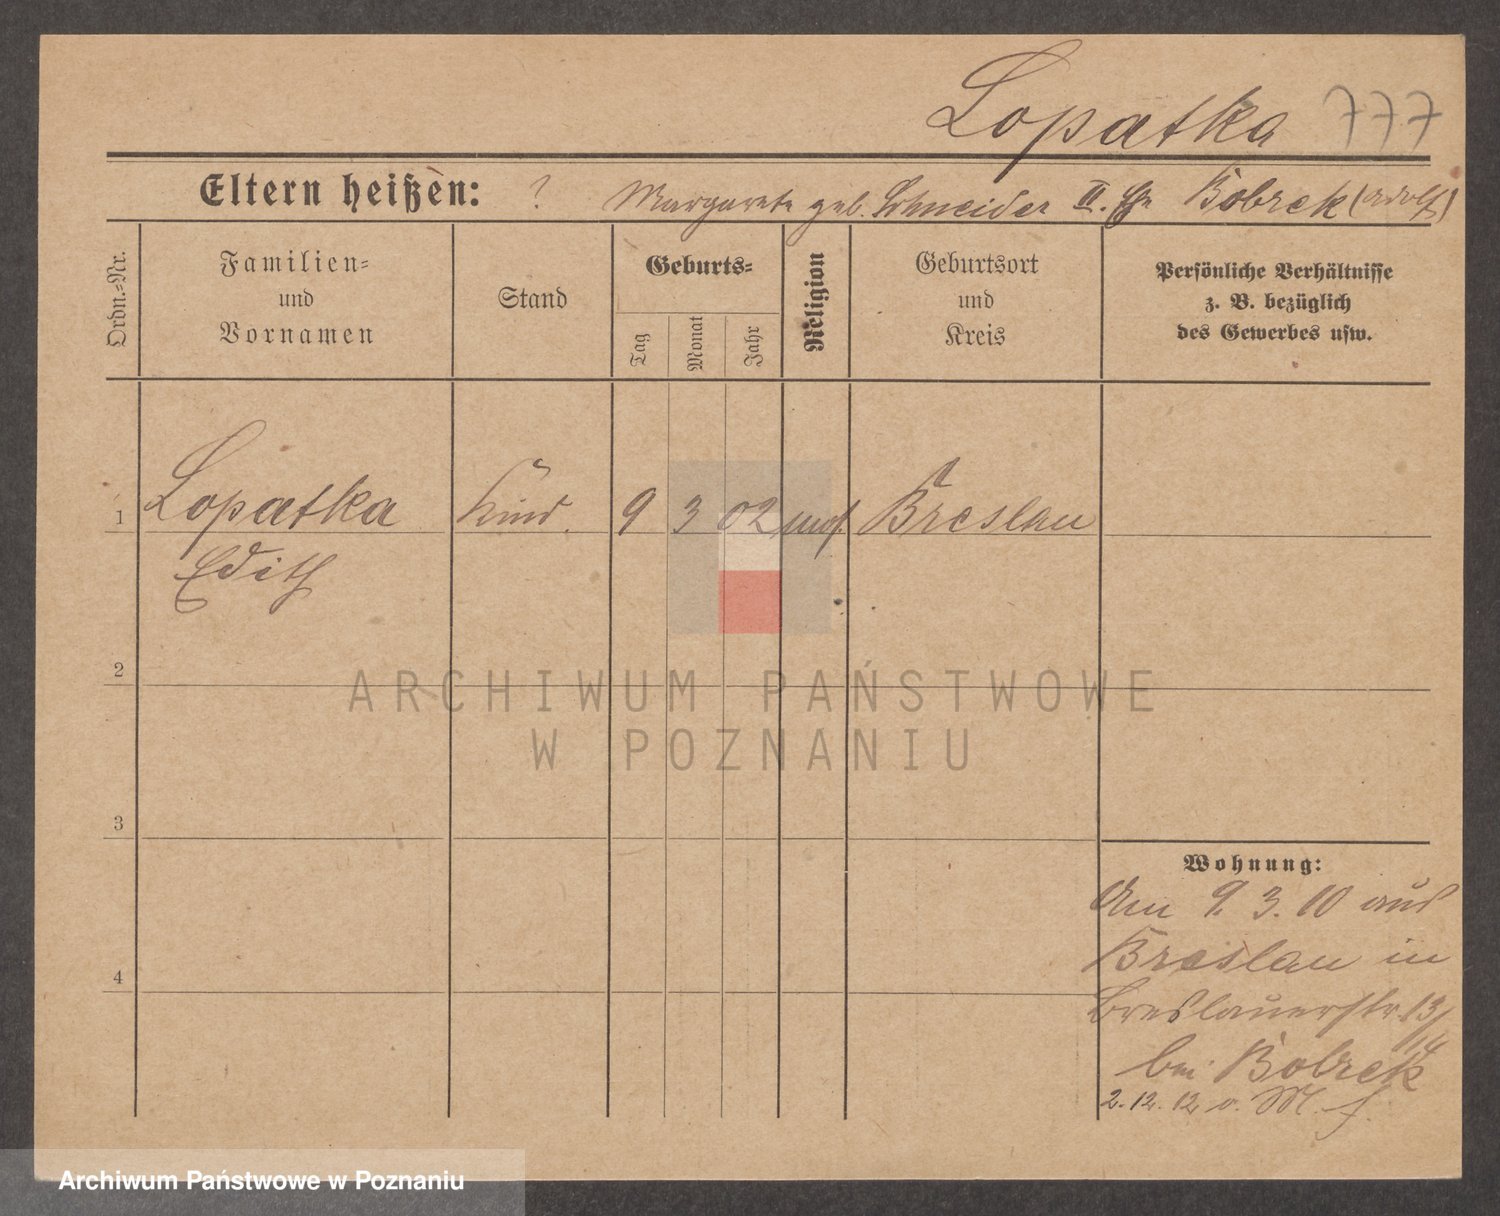 Lopatka 777
Eltern heißen: ? Margarete geb. Schneider II. Ehe Bobrek (Adolf)
Ordn.=Nr.
Familien=
und
Vornamen
Stand
Geburts=
Tag
Monat
Jahr
Religion
Geburtsort
und
Kreis
Persönliche Verhältnisse
z. B. bezüglich
des Gewerbes usw.
1 Lopatka Kind. 9 3 02 mos. Breslau
Edith
2
3
4
Wohnung:
Am 9. 3. 10 aus
Breslau in
Breslauerstr. 13/
14
bei Bobrek
2. 12. 12 v. M.
ARCHIWUM PAŃSTWOWE
W POZNANIU
Archiwum Państwowe w Poznaniu